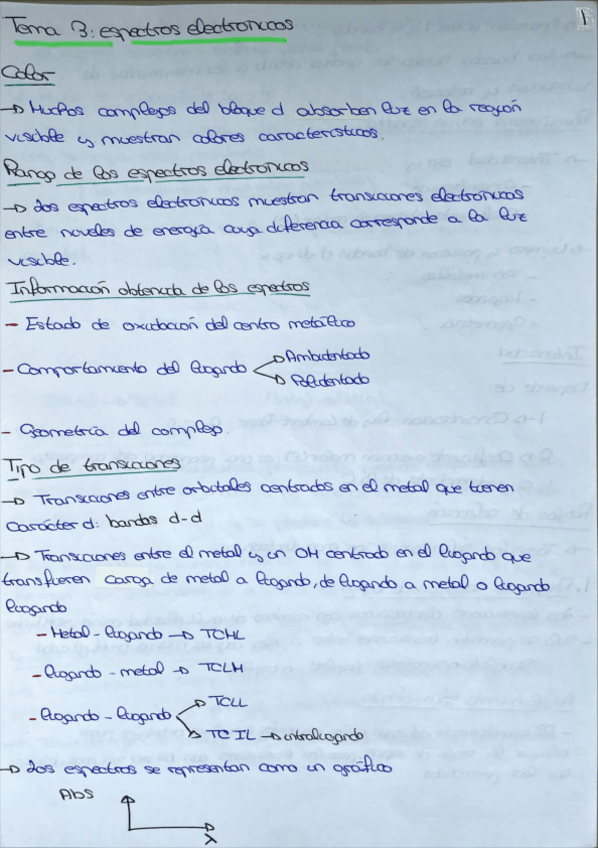 1
Tema 3: espectros electronicos
Color
→ Muchos complejos del bloque d absorben luz en la region
visible y muestran colores caracteristicos.
Rango de los espectros electronicos
→ Los espectros electrónicos muestran transiciones electrónicas
entre niveles de energia cuya diferencia corresponde a la luz
visible.
Información obtenida de los espectros
- Estado de oxidación del centro metálico
- Comportamiento del ligando → Ambidentado
→ Polidentado
- Geometria del complejo.
Tipo de transiciones
→ Transiciones entre orbitales centrados en el metal que tienen
carácter d: bandas d-d
→ Transiciones entre el metal y un OM centrado en el ligando que
transfieren carga de metal a ligando, de ligando a metal o ligando
ligando
- Metal - ligando → TCML
- ligando - metal → TCLM
- ligando - ligando → TCLL
→ TCIL → intraligando
→ Los espectros se representan como un gráfico
Abs
λ